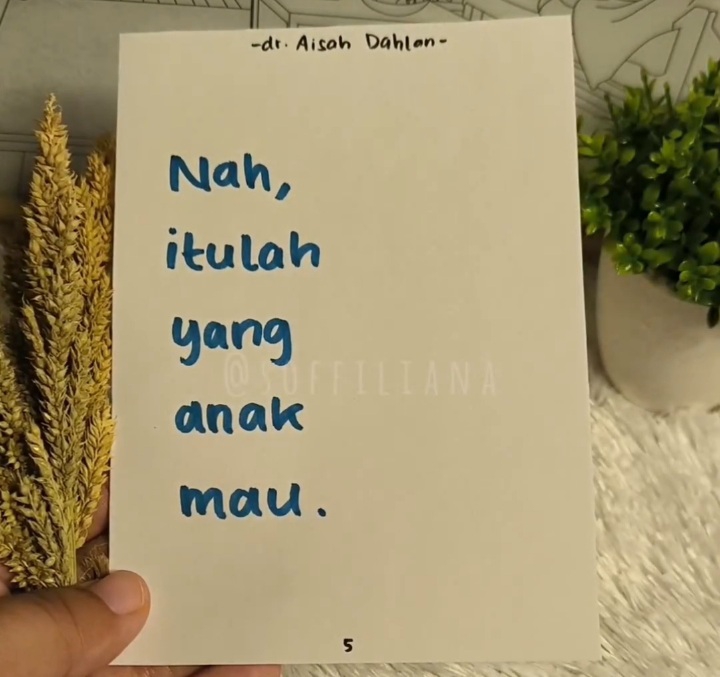 -dr. Aisah Dahlan-
Nah,
itulah
yang
@SUFFILIANA
anak
mau.
5